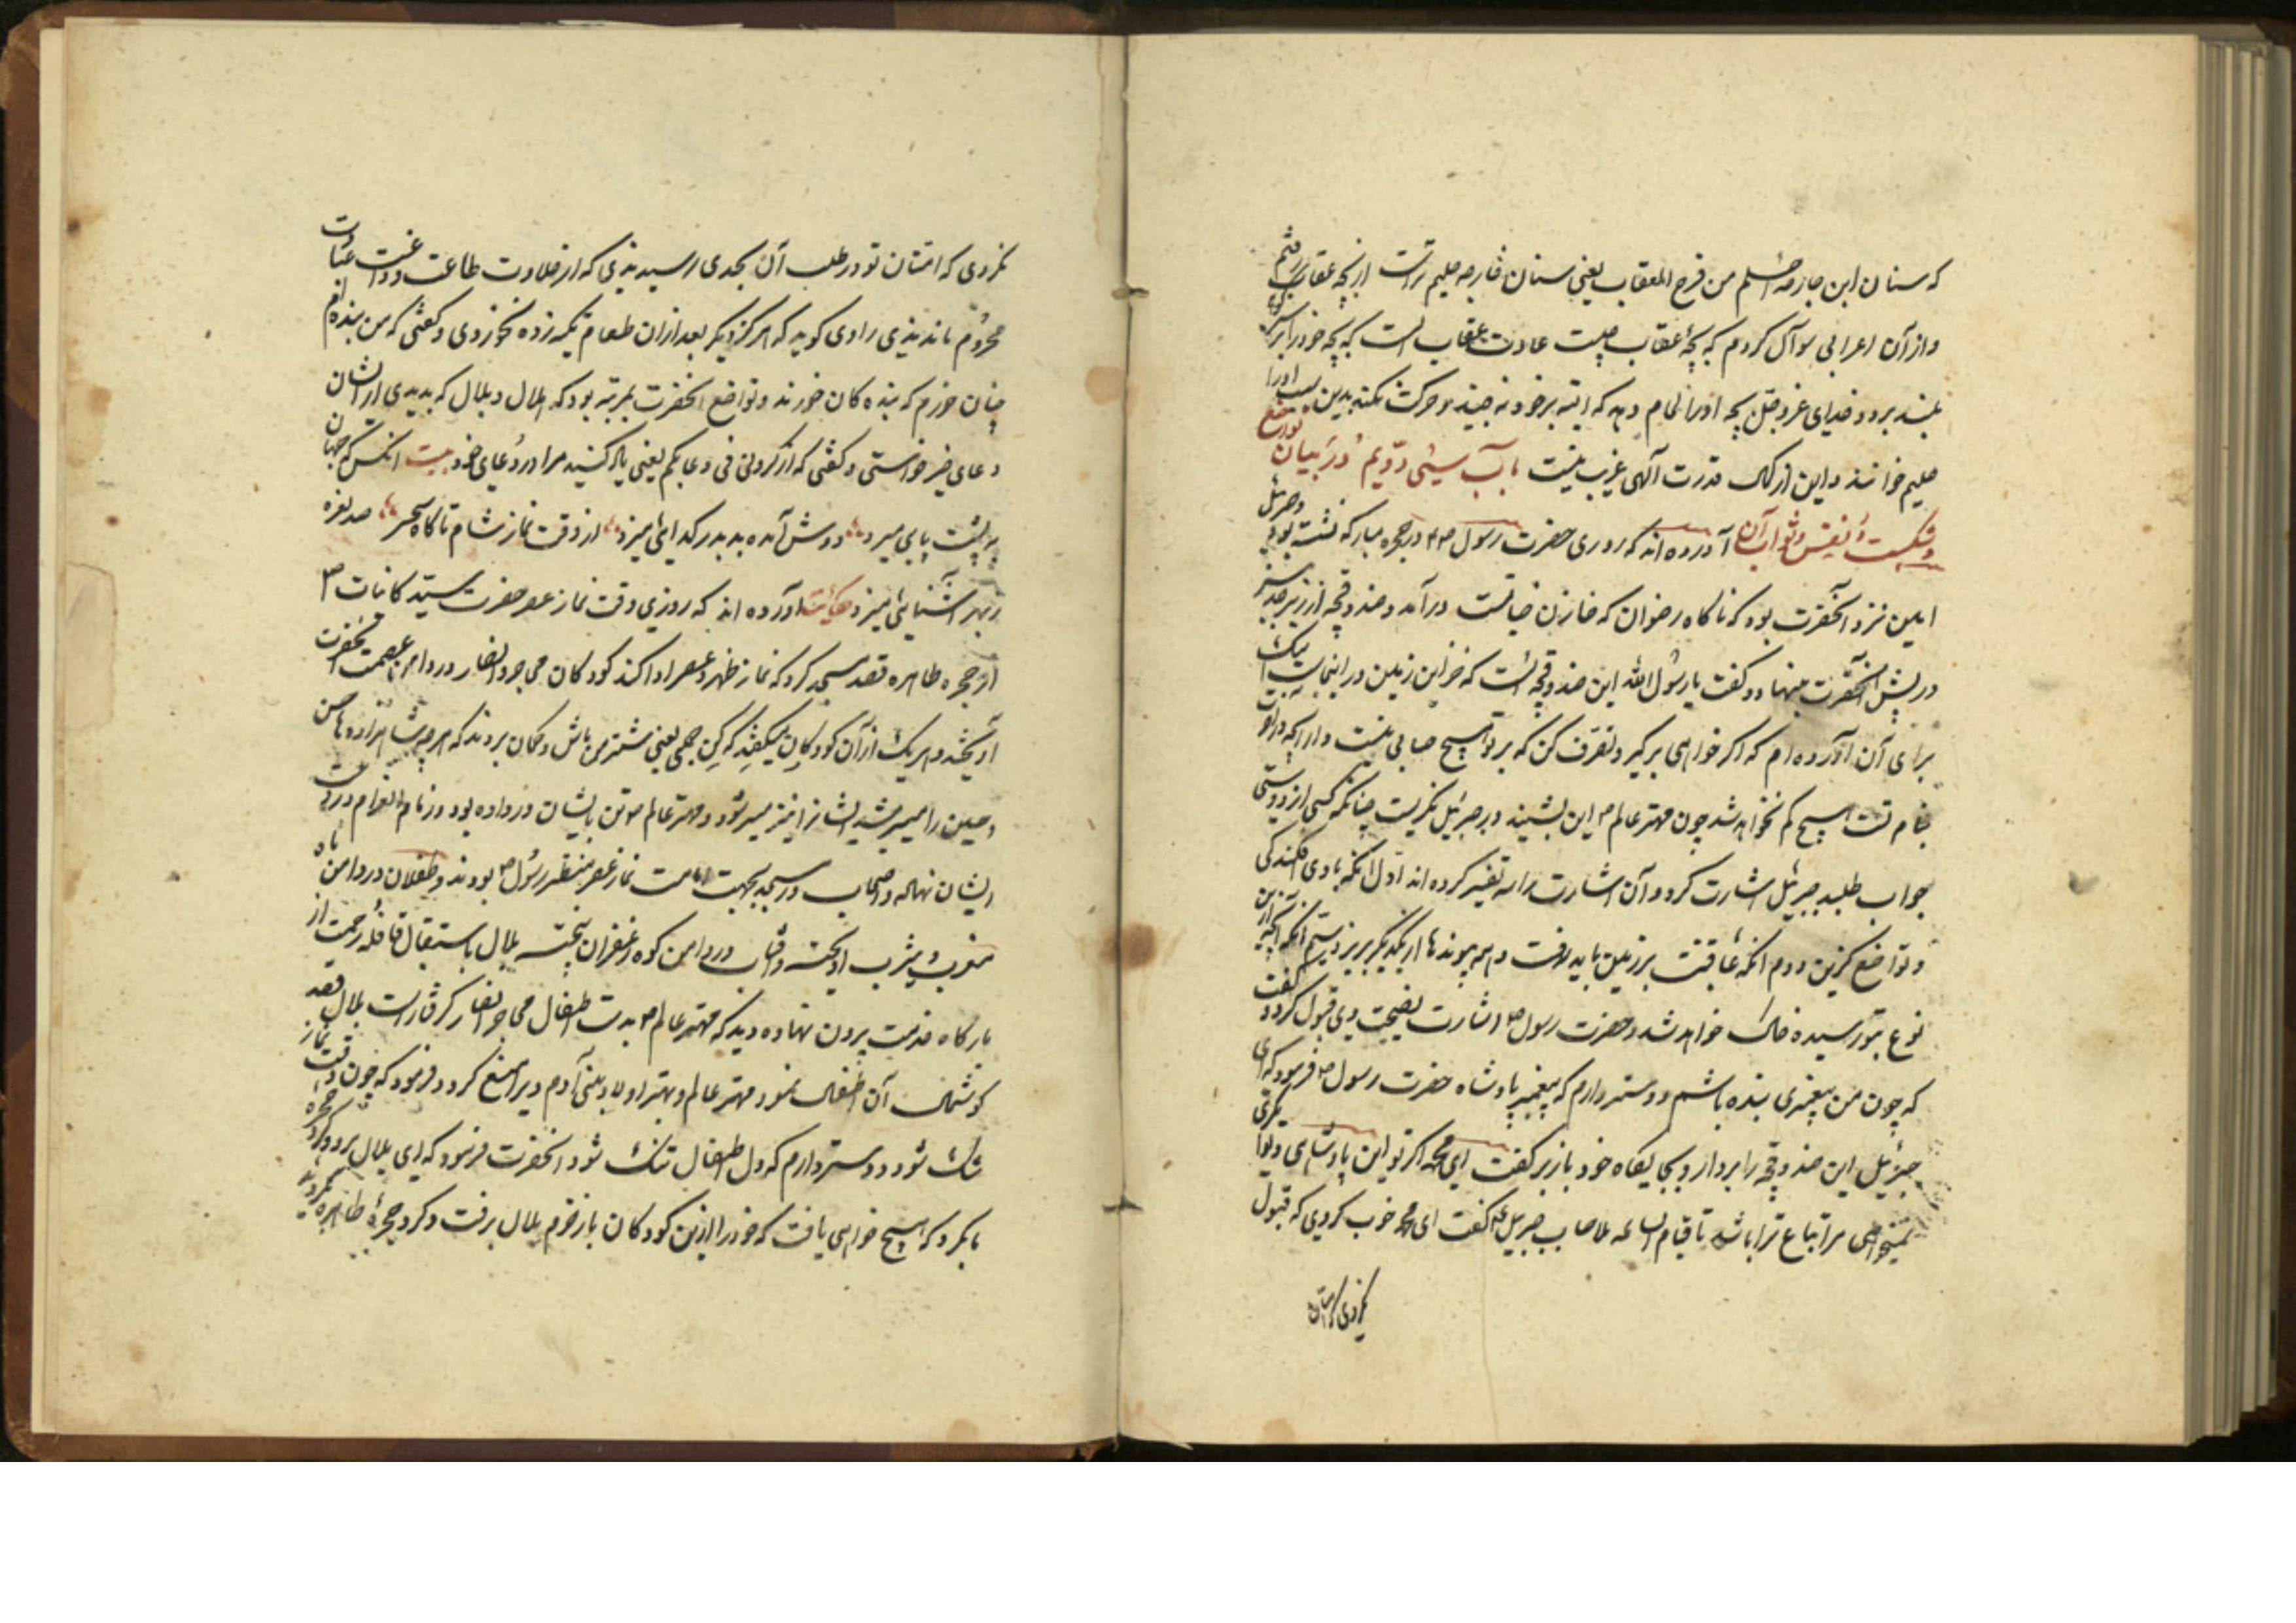 که سنان ابن جارحه احلم من فرخ العقاب یعنی سنان جارحه حلیم تراست از بچه عقاب
واز آن اعرابی سوآل کردم که بچهٔ عقاب چیست عادت عقاب است که بچه خود را بر سر
بلند برد و خدای عزوجل بچه اورا الهام دهد که البته بر خود نه جنبد و حرکت نکند بدین سبب اورا
حلیم خوانند و این از کمال قدرت آلهی غریب نیست باب سیئی ودویم در بیان تواضع
وشکست نفس وثواب آن آورده اند که روزی حضرت رسول صم در حجره مبارکه نشسته بود وجبرئیل
امین نزد آنحضرت بود که ناکاه رضوان که خازن جنانست درآمد و صندوقچه از زبرجد سبز
در پیش آنحضرت بنهاد و کفت یا رسول الله این صندوقچه ایست که خزاین زمین در اینجاست
برای آن آورده ام که اکر خواهی برکیر و تصرف کن که بر تو هیچ حسابی نیست و از آنچه
بنام تست هیچ کم نخواهد شد چون مهتر عالم ص این بشنید در جبرئیل نکریست چنانکه کسی از دوستی
جواب طلبد جبرئیل اشارت کرد و آن اشارت را سه تفسیر کرده اند اول آنکه با وی افکندکی
و تواضع کزین دوم آنکه عاقبت بزمین باید رفت و همه پیوندها از یکدیکر بریزد سیم آنکه
نوع بتو رسیده خاک خواهد شد و حضرت رسول ص اشارت نصیحت وی قبول کرد و کفت
که چون من پیغمبری بنده باشم دوستر دارم که پیغمبر پادشاه حضرت رسول ص فرمود که ای
جبرئیل این صندوقچه را بردار و بجایکاه خود باز بر کفت ای محمد اکر تو این پادشاهی
نمیخواهی مر اتباع ترا باشد تا قیام الساعه بلا حساب جبرئیل عم کفت ای محمد خوب کردی که قبول
نکردی که امتان
نکردی که امتان تو در طلب آن بجدی رسیدندی که از حلاوت طاعت و عبادت
محروم ماندندی راوی کوید که هرکز دیکر بعد از آن طعام تکیه زده نخوردی و کفتی که من بنده ام
چنان خورم که بنده کان خورند و تواضع آنحضرت بمرتبه بود که بلال و هلال که بدیدی از ایشان
دعای خیر خواستی و کفتی که اذکرونی فی دعایکم یعنی یاد کنید مرا در دعای خود بیت آنکس که جهان
به پشت پایی میزد دوش آمده بد بدر کدایی میزد از وقت نماز شام تا کاه سحر صد نعره
ز بهر آشنایی میزد حکایت آورده اند که روزی وقت نماز عصر حضرت سید کاینات ص
از حجره طاهره قصد مسجد کرد که نماز ظهر و عصر ادا کند کودکان مهاجر و انصار در دامن عصمت آنحضرت
آویختند و هریک از آن کودکان میکفتند که کن جملی یعنی شتر من باش و کمان بردند که هرچه شاهزاده ها حسن
و حسین را میسر شد ایشانرا نیز میسر شود و مهتر عالم ص تن بایشان در داده بود و زمام انعام در دست
ایشان نهاده و اصحاب در مسجد بجهت امامت نماز عصر منتظر رسول ص بودند و طفلان در دامن ماه
مغرب و یثرب آویخته و آفتاب در دامن کوه زعفران بیخته بلال باستقبال قافلهٔ رحمت از
بارکاه خدمت بیرون نهاده دید که مهتر عالم ص بدست اطفال مهاجر و انصار کرفتار است بلال قصد
کوشمال آن اطفال نمود مهتر عالم و بهتر اولاد بنی آدم ویرا منع کرد و فرمود که چون وقت نماز
تنک شود دوستر دارم که دل اطفال تنک شود آنحضرت فرمود که ای بلال برو و کرد حجره
بآکرد که هیچ خواهی یافت که خود را ازین کودکان باز خرم بلال برفت و کرد حجرهٔ طاهره بکردید